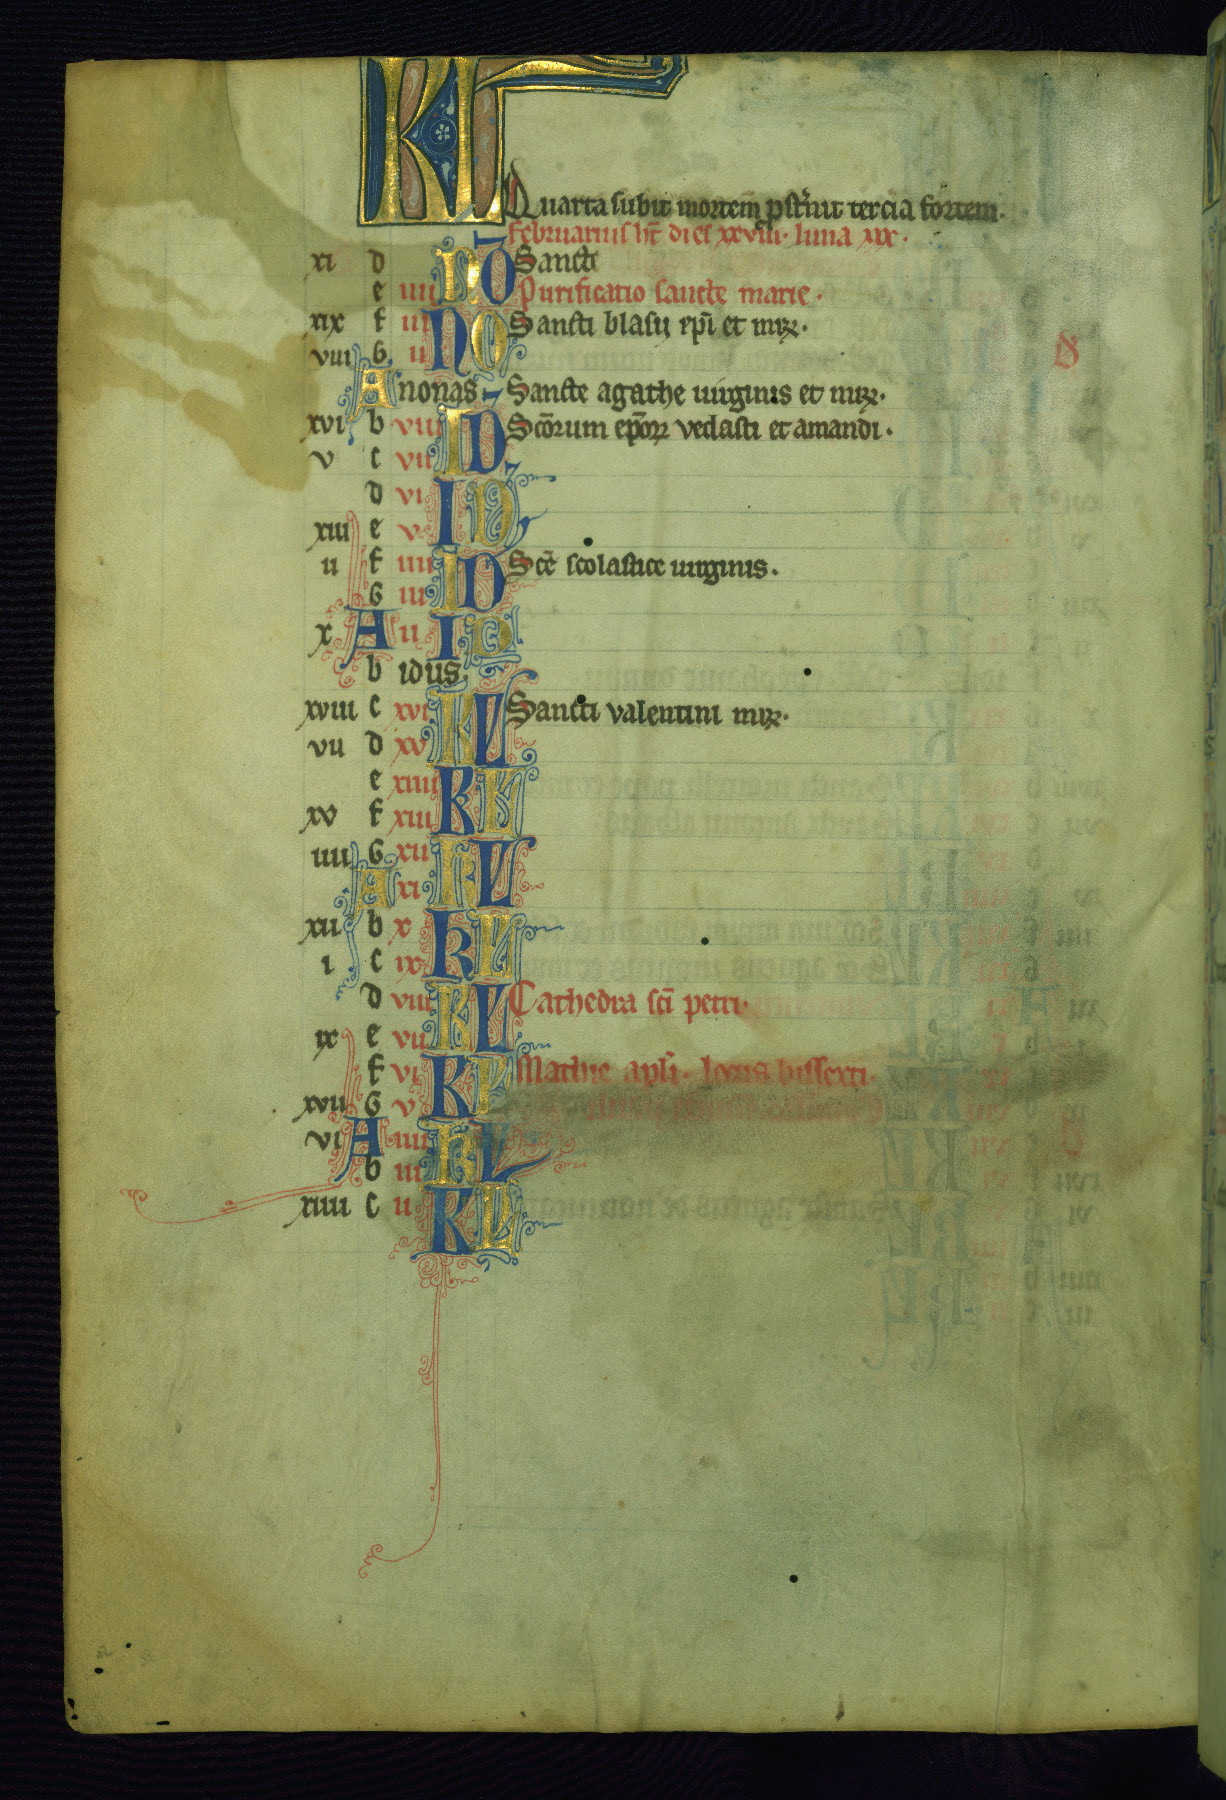 KL
Quarta subit mortem ꝓst̉nit tercia fortem.
februarius ht̄ dies xxviii. luna xix.
xi d N O Sancte
e iiii Purificatio sancte marie.
xix f iii N O Sancti blasii ep̄i et mr̄ꝝ.
viii G ii
A nonas Sancte agathe uirginis et mr̄ꝝ.
xvi b viii I D Sc̄orum ep̄orꝝ vedasti et amandi.
v c vii
d vi I D
xiii e v
ii f iiii I D Sc̄e scolastice uirginis.
G iii
x A ii I D
b idus.
xviii c xvi K L Sancti valentini mr̄ꝝ.
vii d xv
e xiiii K L
xv f xiii
iiii G xii K L
A xi
xii b x K L
i c ix
d viii K L Cathedra sc̄i petri.
ix e vii
f vi K L Mathie apl̄i. locus bissexti.
xvii G v
vi A iiii K L
b iii
xiiii c ii K L